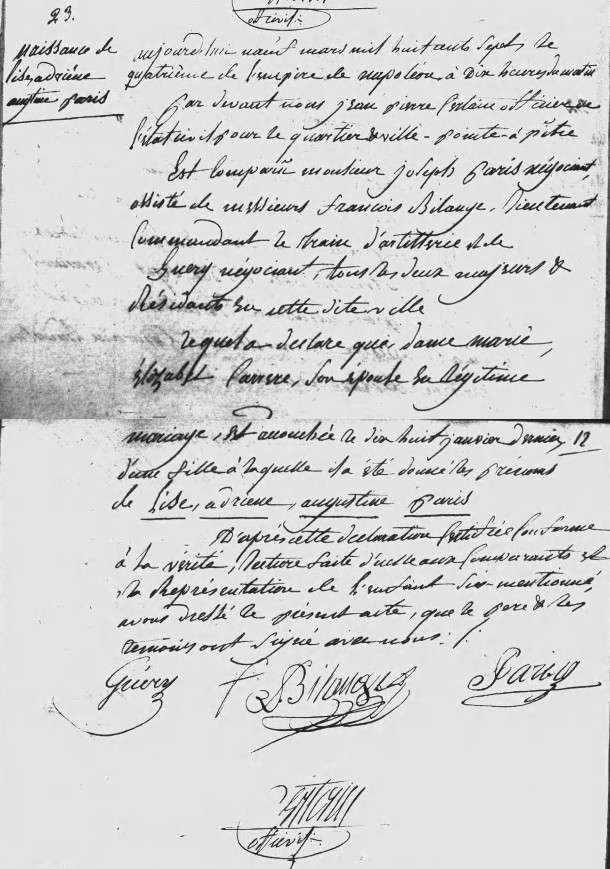 off. civil.
23.
naissance de
lise, adriéne
augtine paris
aujourd'hui neuf mars mil huit cents sept, le
quatriéme de l'empire de napoléon, à Dix heures du matin
par devant nous jean pierre officier de
l'état civil pour le quartier & ville - pointe-à-pitre
Est Comparû monsieur joseph paris négociant,
assisté de messieurs françois Bilange, lieutenant
Commandant le train d'artillerie, et de
Guéry négociant, tous les deux majeurs &
Résidants En cette dite ville
lequel a declaré que dame marie,
élizabet Carrere, Son épouse En légitime
mariage, Est accouchée le dix huit janvier dernier, 12
d'une fille à laquelle il a été donné les prénoms
de Lise, adriene, augustine paris
D'après cette déclaration Certifiée Conforme
à la vérité, lecture faite d'icelle aux Comparants et
la Représentation de l'enfant Sus mentionné,
avons dressé le présent acte, que le pere & les
temoins ont Signé avec nous :/.
Guéry f. Bilange Paris
off. civil.